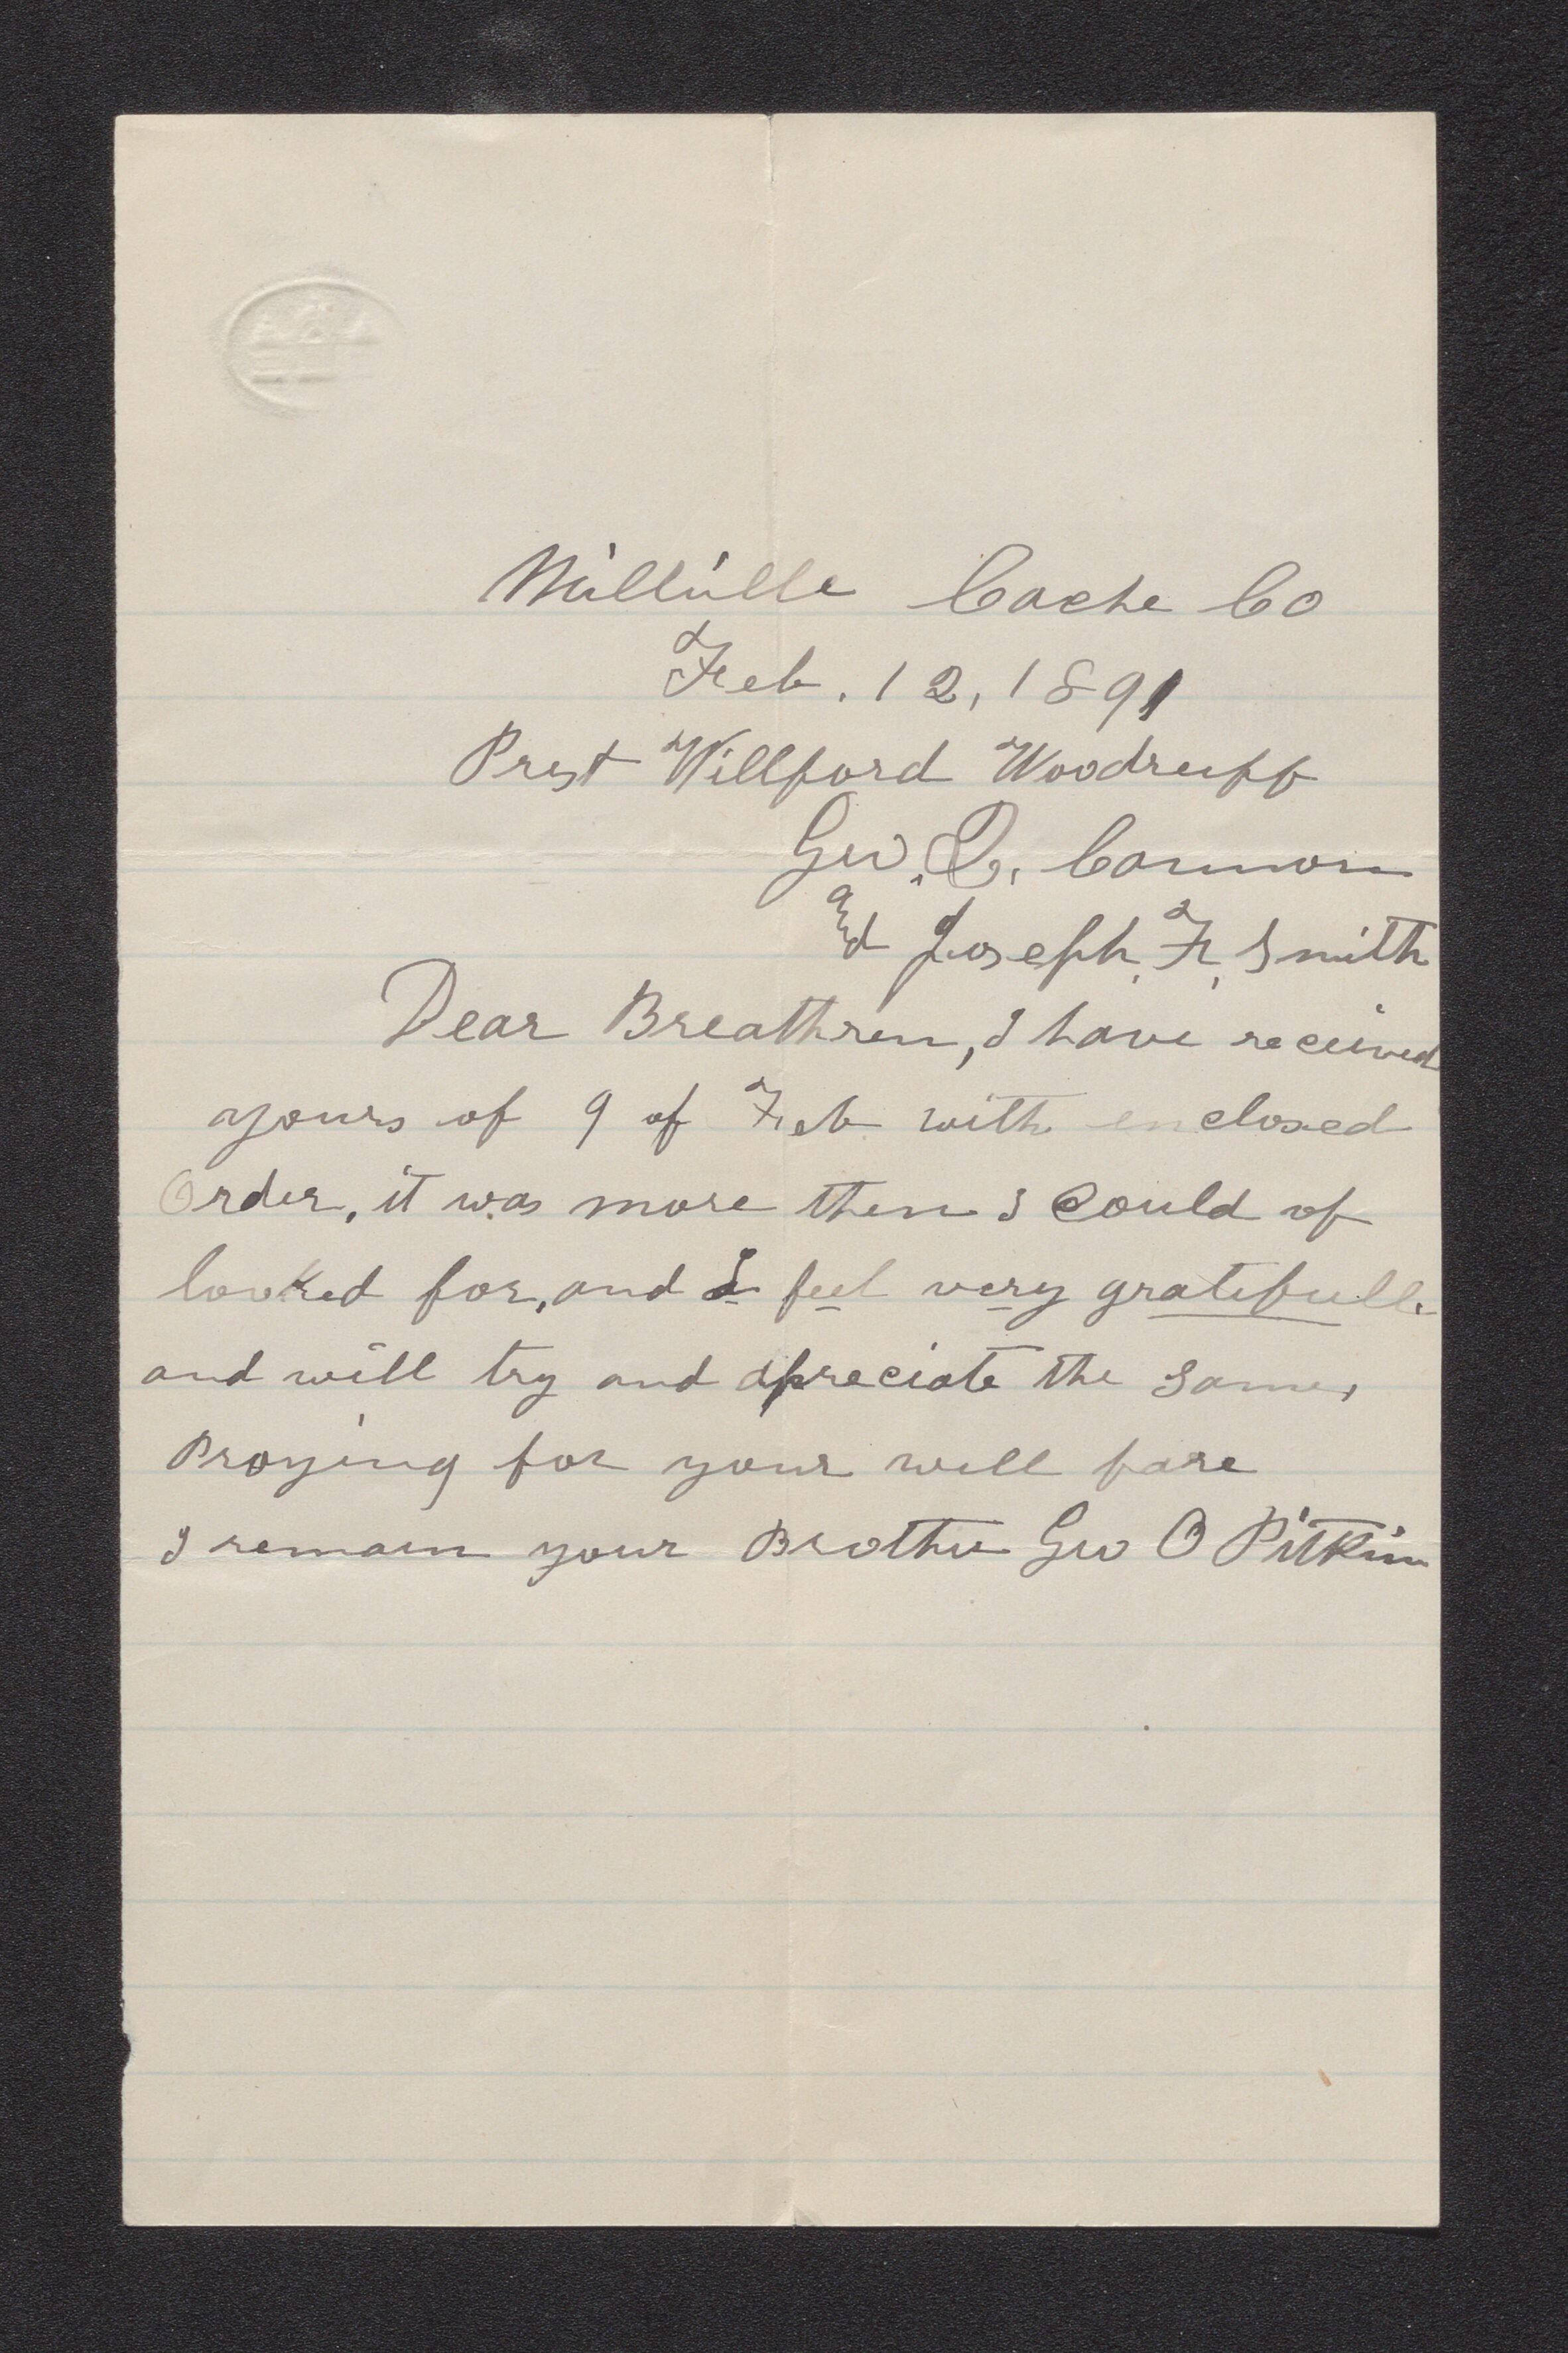 Millville Cache Co
Feb. 12, 1891
Prest Willford Woodruff
Geo. Q. Cannon
and Joseph. F. Smith
Dear Breathren, I have received
yours of 9 of Feb with enclosed
Order, it was more then I Could of
looked for, and I feel very gratifull.
and will try and apreciate the same,
Praying for your well fare
I remain your Brother Geo O Pitkin